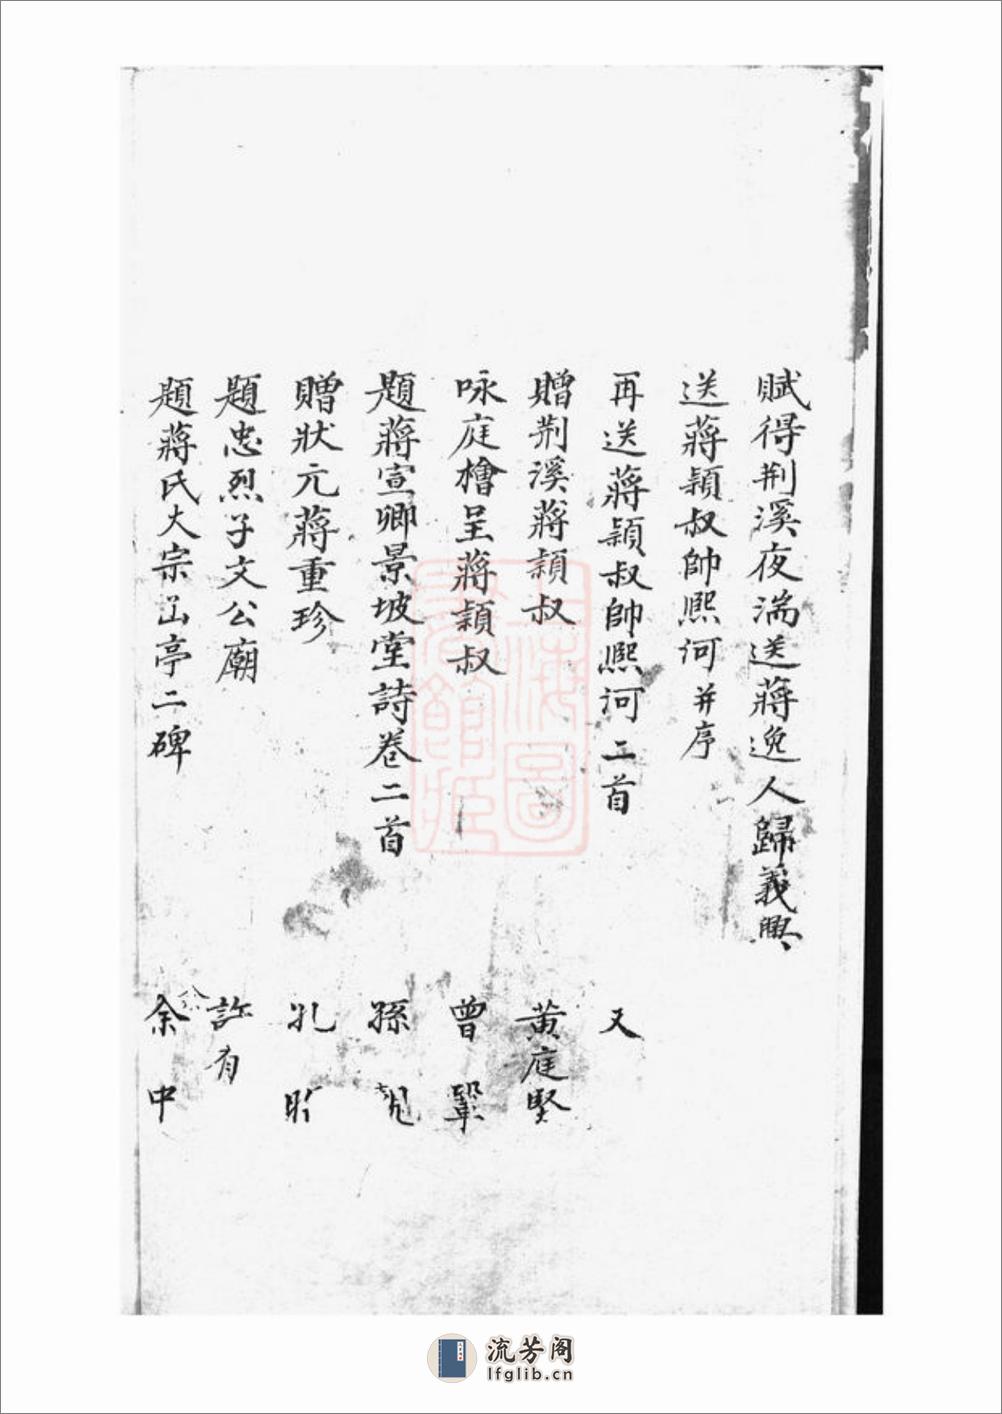 賦得荆溪夜湍送蔣逸人歸義興
送蔣穎叔帥熙河并序
再送蔣穎叔帥熙河二首 又
贈荆溪蔣穎叔 黄庭堅
咏庭檜呈蔣穎叔 曾鞏
題蔣宣卿景坡堂詩卷二首 孫覿
贈狀元蔣重珍 孔
題忠烈子文公廟 許有
題蔣氏大宗 亭二碑 余中
上海圖書館藏
流芳阁
lfglib.cn